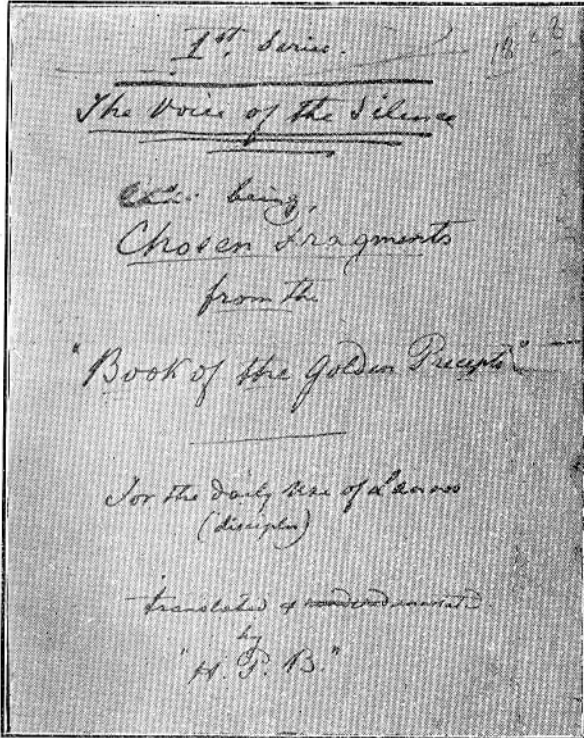 1st Series.
The Voice of the Silence
being,
Chosen Fragments
from the
"Book of the Golden Precepts"
For the Daily Use of Lanoos
(disciples)
translated & annotated
by
"H. P. B."